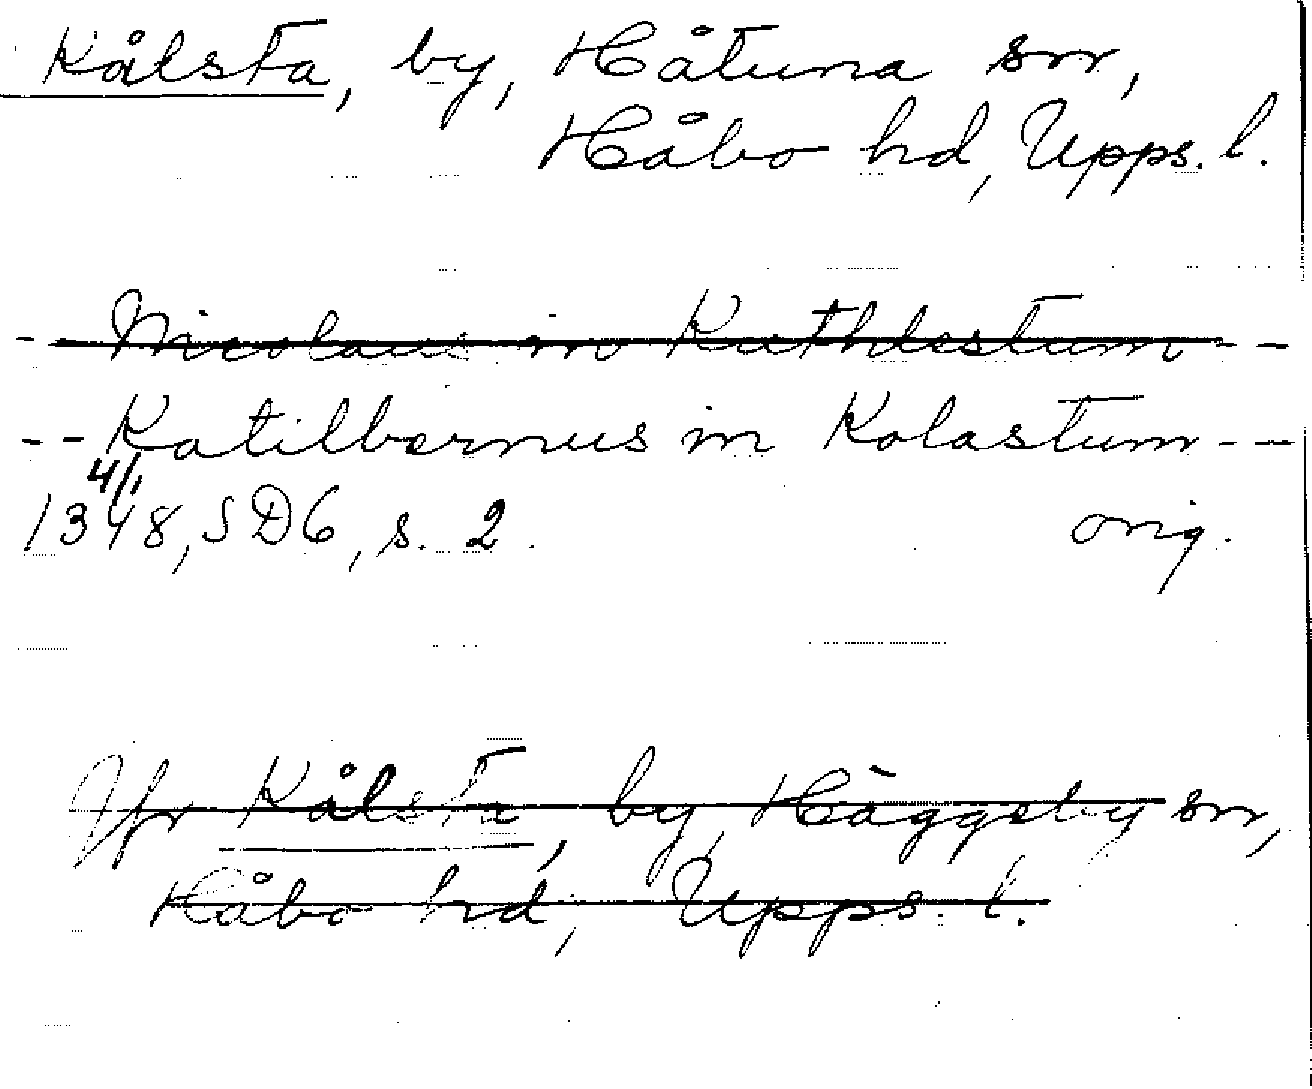 Kålsta, by, Håtuna sn,
Håbo hd, Upps. l.
- - Nicolaus in Kuthlestum - -
- - Katilbernus in Kolastum - -
4/1
1348, SD6, s. 2. orig.
Jfr Kålsta, by, Häggeby sn,
Håbo hd, Upps. l.